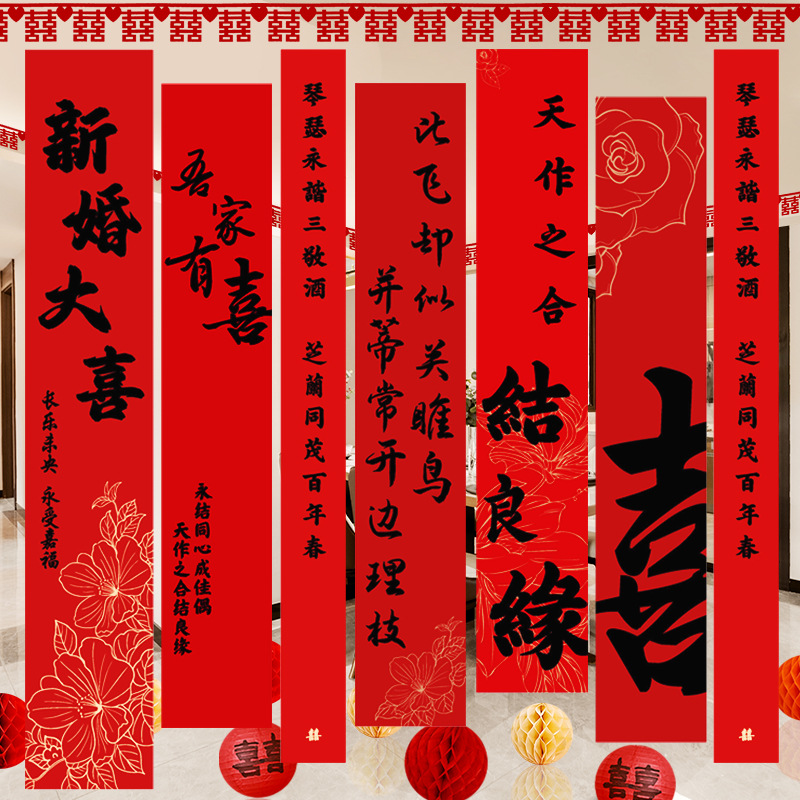 囍囍囍囍囍囍囍囍囍囍囍囍囍囍囍囍囍
新婚大喜
长乐未央 永受嘉福
吾家有喜
永结同心成佳偶
天作之合结良缘
琴瑟永諧三敬酒 芝蘭同茂百年春
囍
比飞却似关雎鸟
并蒂常开边理枝
天作之合
結良緣
喜
琴瑟永諧三敬酒 芝蘭同茂百年春
囍
囍
囍